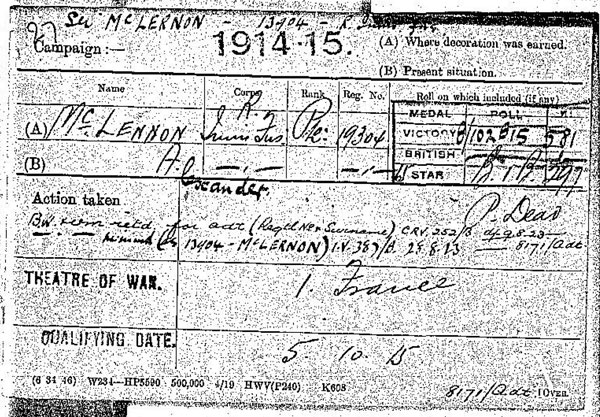 See McLERNON - 13904 - R. Innis Fus
Campaign :— 1914-15.
(A) Where decoration was earned.
(B) Present situation.
Name Corps Rank Reg. No. Roll on which included (if any)
MEDAL ROLL
(A) McLENNON R. Innis Fus. Pte. 19304
VICTORY 102 B15 581
BRITISH
(B) Alexander.
STAR
Action taken
P. Dead
for adt (Regtl No & Surname) CRV. 252/B
13904 - McLERNON) I.V. 387/B. 28.8.23 8171/Adt
THEATRE OF WAR. 1. France
QUALIFYING DATE. 5 10. 15
(6 34 46) W234—HP5590 500,000 4/19 HWV(P240) K608
8171/Adt